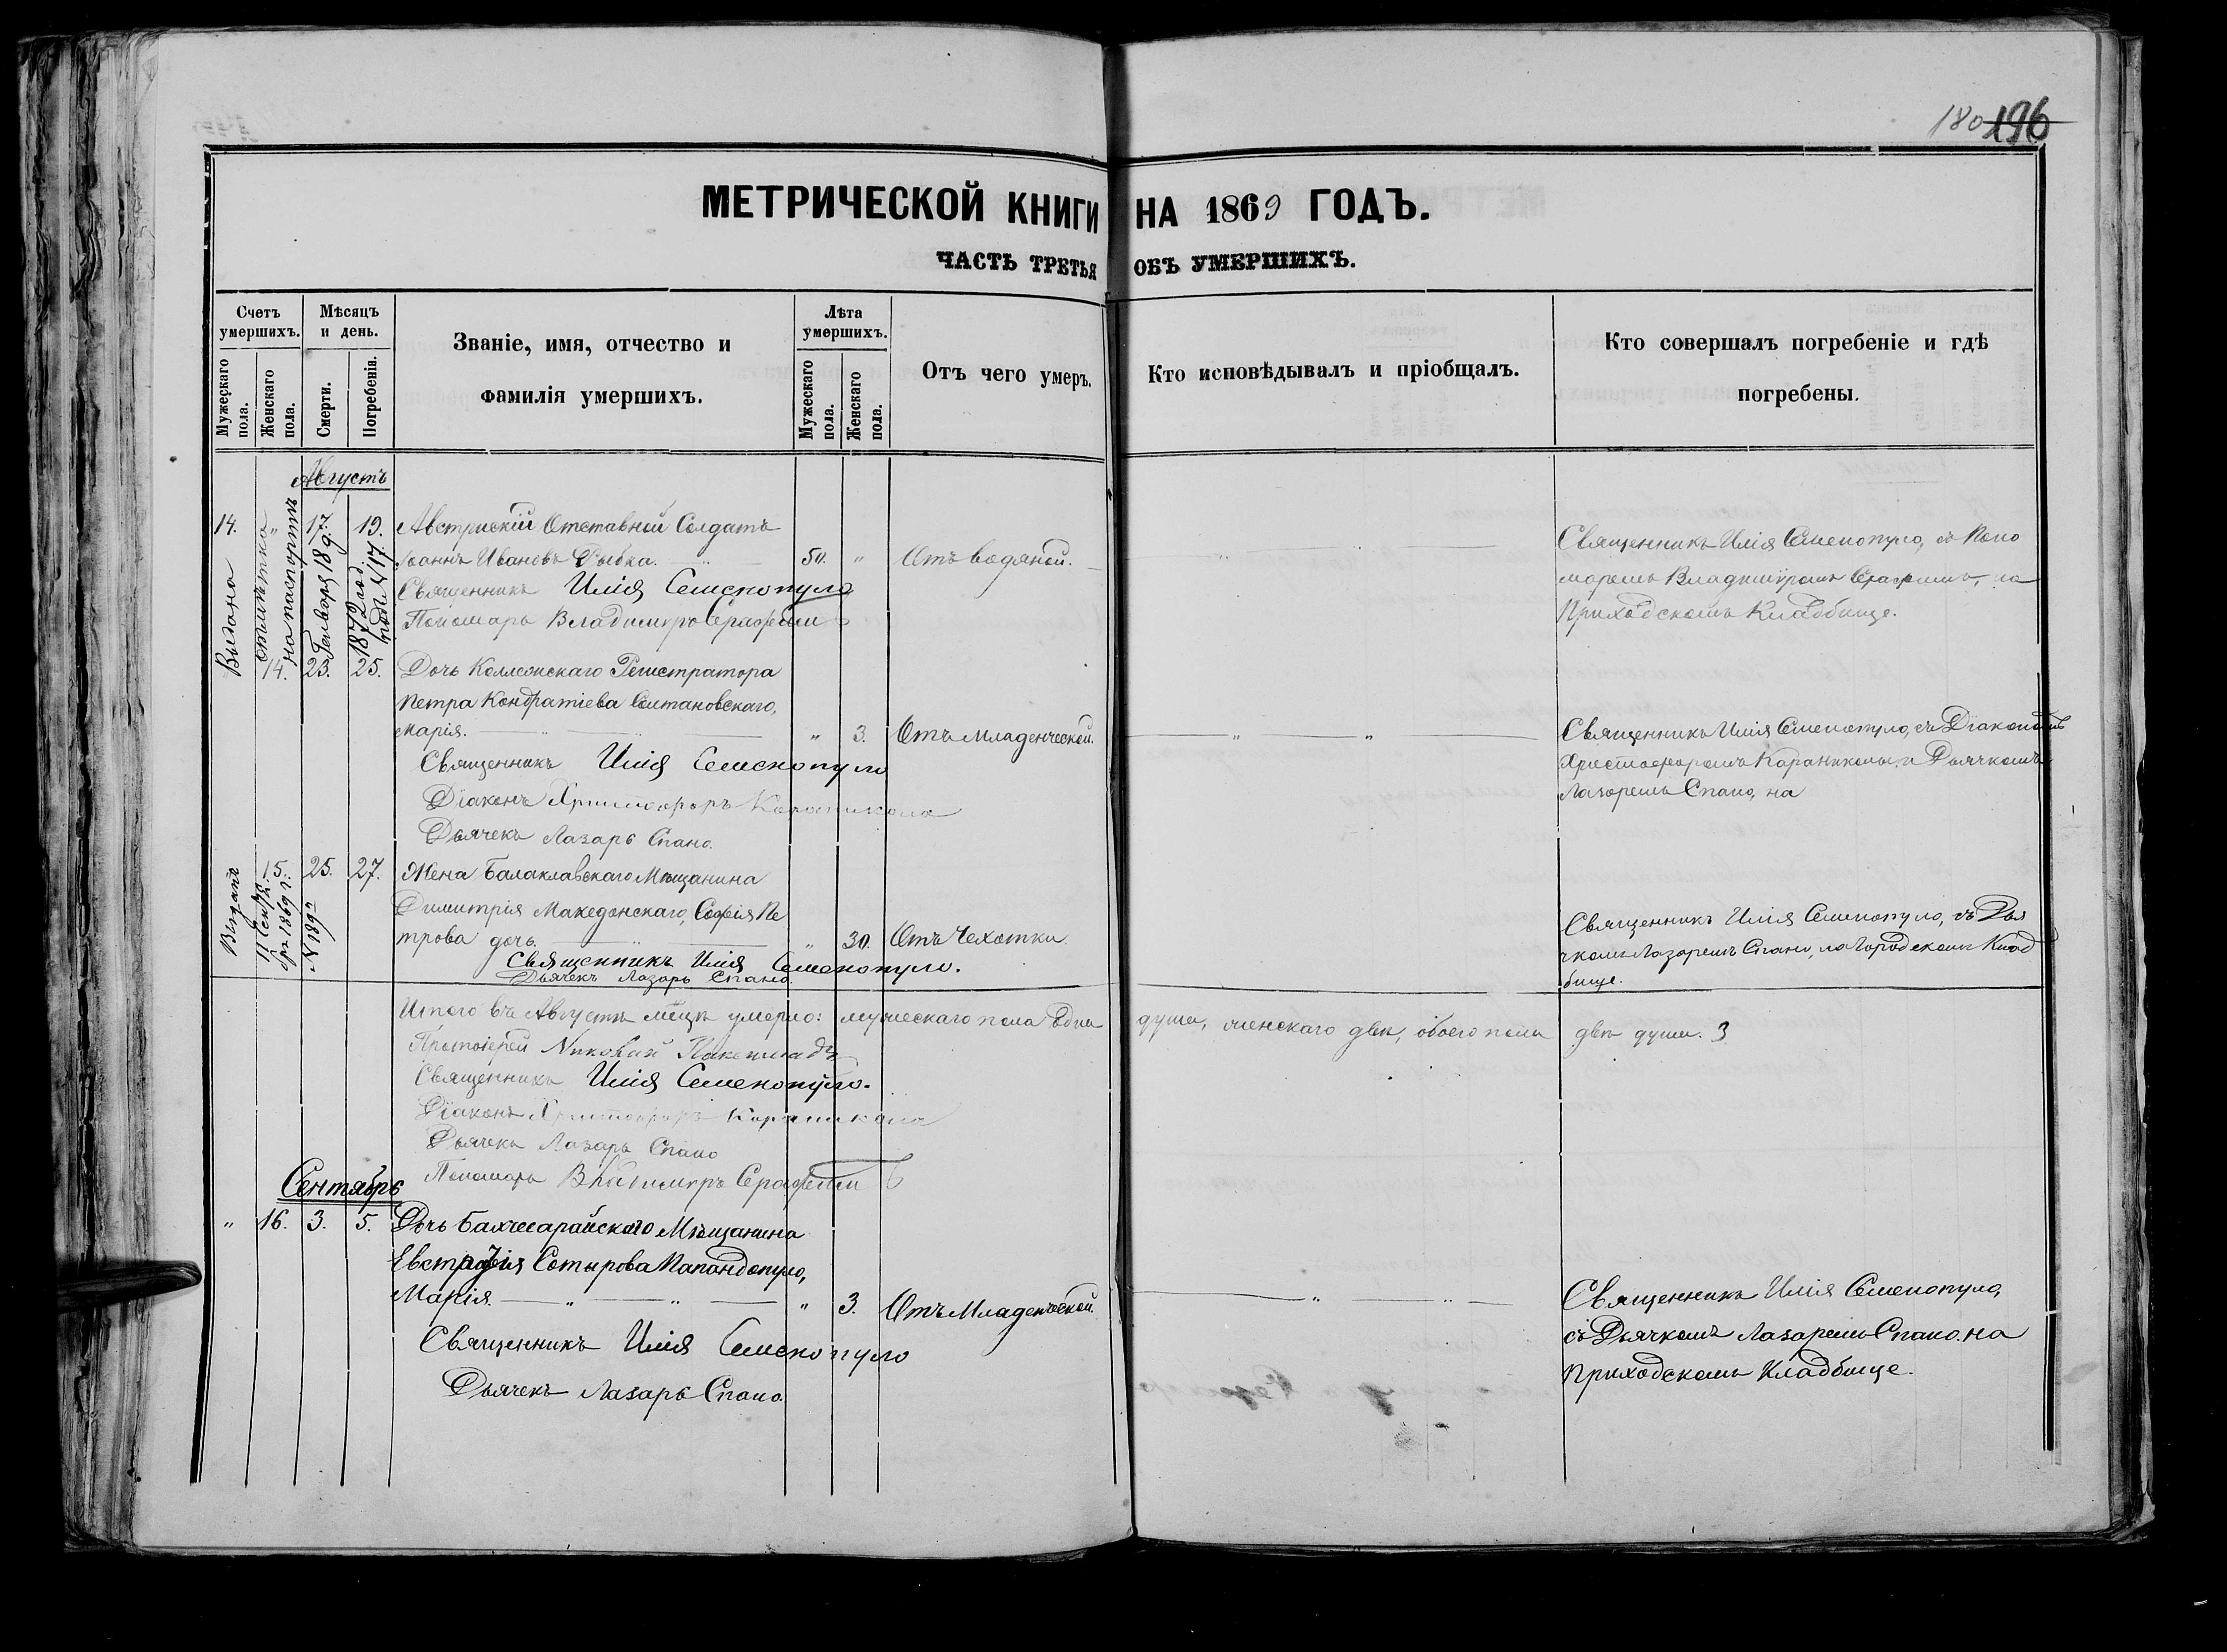 180 196
МЕТРИЧЕСКОЙ КНИГИ НА 1869 ГОДЪ.
ЧАСТЬ ТРЕТЬЯ ОБЪ УМЕРШИХЪ.
Счетъ умершихъ.
Мужескаго пола.
Женскаго пола.
Мѣсяцъ и день.
Смерти.
Погребенія.
Званіе, имя, отчество и
фамилія умершихъ.
Лѣта умершихъ.
Мужескаго пола.
Женскаго пола.
Отъ чего умеръ.
Кто исповѣдывалъ и пріобщалъ.
Кто совершалъ погребеніе и гдѣ
погребены.
Августъ
14. " 17. 19. Австрискій Отставной Солдатъ
Іоаннъ Ивановъ Рыбка. 50. " Отъ водяной.
Священникъ Илія Семенопуло
Пономарь Владимиръ Серафим
Священникъ Илія Семенопуло, съ Поно
маремъ Владимиромъ Серафимъ, на
Приходскомъ Кладбище.
Выдана отмѣтка на паспортѣ
14. 23. 25. Дочь Коллежскаго Регистратора
Петра Кондратіева Солтановскаго,
Марія. " 3. Отъ Младенческой.
Священникъ Илія Семенопуло
Діаконъ Христофоръ Караникола
Дьячекъ Лазарь Спано.
Священникъ Илія Семенопуло, съ Діакономъ
Христофоромъ Караниколы, и Дьячкомъ
Лазаремъ Спано, на
15. 25. 27. Жена Балаклавскаго Мѣщанина
Димитрія Македонскаго, Софія Пе
трова дочь. " 30. Отъ Чехотки.
Священникъ Илія Семенопуло.
Дьячекъ Лазарь Спано.
Священникъ Илія Семенопуло, съ Дья
чкомъ Лазаремъ Спано, на Городскомъ Клад
бище.
Итого въ Августѣ мѣцѣ умерло: мужескаго пола одна душа, женскаго двѣ, обоего пола двѣ души. 3
Протоіерей
Священникъ Илія Семенопуло.
Діаконъ Христофоръ Караникола
Дьячекъ Лазарь Спано
Пономарь Владимиръ Серафим
Сентябрь
" 16. 3. 5. Дочь Бахчисарайскаго Мѣщанина
Евстрафія Сотырова Папандопуло,
Марія. " 3. Отъ Младенческой.
Священникъ Илія Семенопуло
Дьячекъ Лазарь Спано.
Священникъ Илія Семенопуло,
съ Дьячкомъ Лазаремъ Спано, на
Приходскомъ Кладбище.